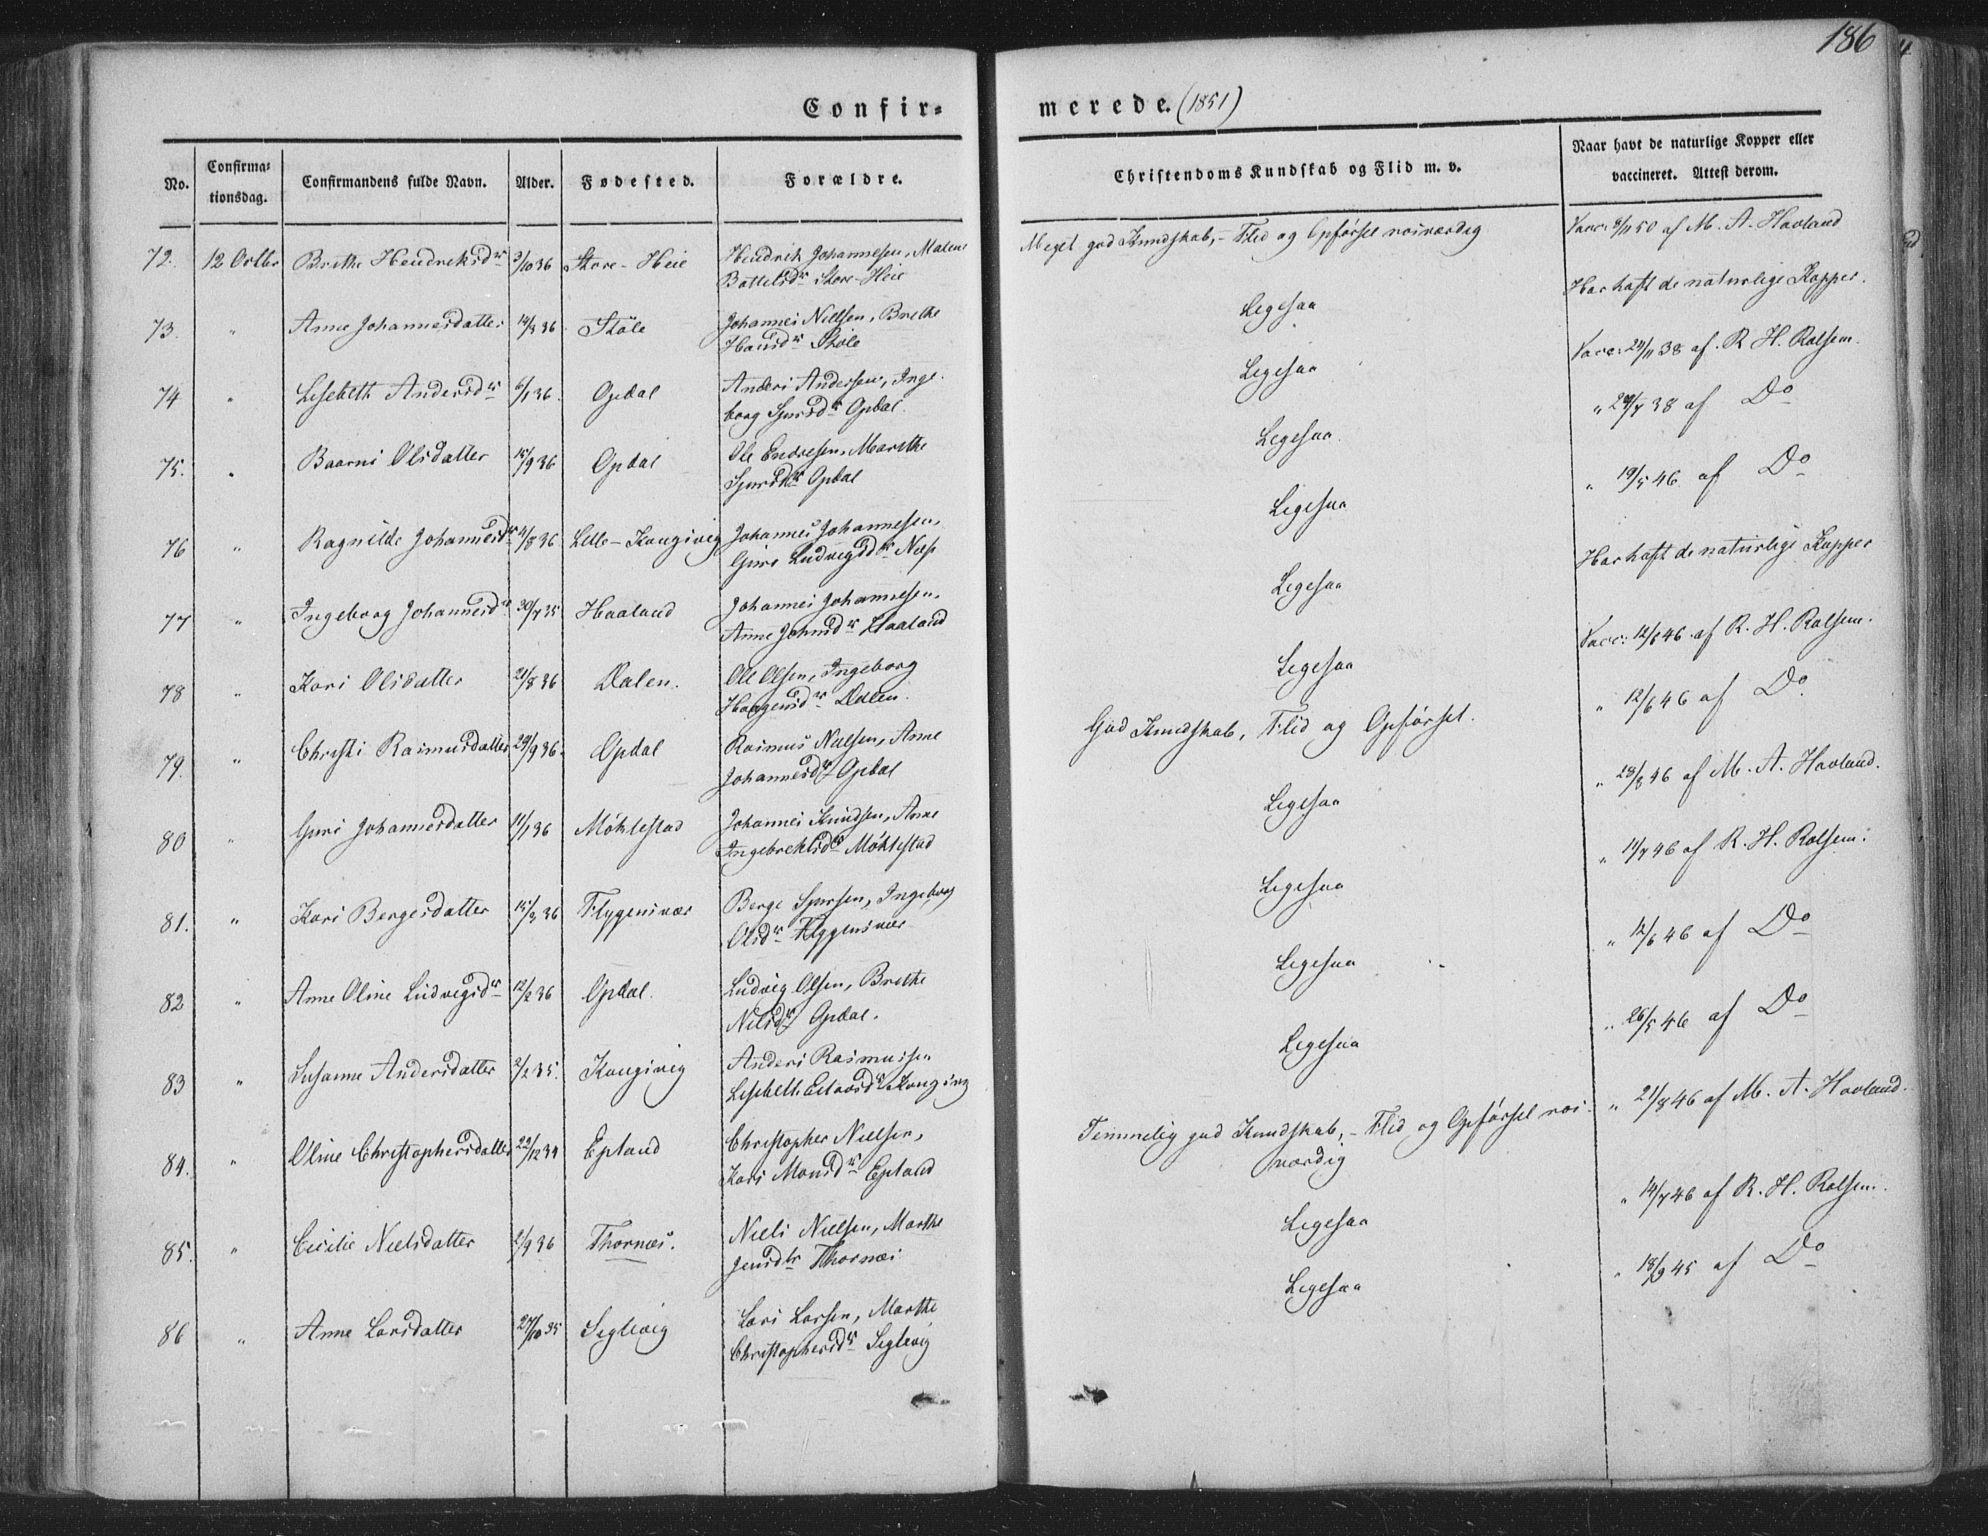 186
Confir-
merede. (1851)
No.
Confirma-
tionsdag.
Confirmandens fulde Navn.
Alder.
Fødested.
Forældre.
Christendoms Kundskab og Flid m. v.
Naar havt de naturlige Kopper eller
vaccineret. Attest derom.
72. 12 Octbr Brithe Hendriksdr 3/10 36 Store-Heie Hendrik Johannesen, Malene
Bottelsdr Store-Heie
Meget god Kundskab, - Flid og Opførsel roesværdig
Vacc: 9/11 50 af M. A. Havland
73. " Anne Johannesdatter 14/3 36 Støle Johannes Nielsen, Brithe
Hansdr Støle
Ligesaa
Har haft de naturlige Kopper.
74 " Lisebeth Andersdr 6/1 36. Opdal Anders Andersen, Inge-
borg Sjursdr Opdal.
Ligesaa
Vacc: 24/11 38 af R. H. Rolfsen.
75. " Baarni Olsdatter 15/9 36 Opdal Ole Endresen, Marithe
Sjursdr Opdal
Ligesaa
" 24/7 38 af Do
76 " Ragnilde Johannesdr 4/8 36 Lille-Kongsvig Johannes Johannesen,
Guro Ludvigsdr Næss
Ligesaa
" 19/5 46 af Do
77 " Ingeborg Johannesdr 30/7 35 Haaland Johannes Johannesen,
Anne Johnsdr Haaland
Ligesaa
Har haft de naturlige Kopper
78 " Kari Olsdatter 21/8 36 Dalen. Ole Olsen, Ingeborg
Haagensdr Dalen.
Ligesaa
Vacc: 12/6 46 af R. H. Rolfsen.
79. " Christi Rasmusdatter 29/9 36. Opdal Rasmus Nielsen, Anne
Johannesdr Opdal
God Kundskab, Flid og Opførsel.
" 12/6 46 af Do
80 " Guri Johannesdatter 11/1 36 Møklestad Johannes Knudsen, Anne
Ingebrektsdr Møklestad
Ligesaa
" 28/8 46 af M. A. Havland.
81. " Kari Bergesdatter 15/3 36 Flygensvær Berge Sjursen, Ingeborg
Olsdr Flygensvær
Ligesaa
" 14/7 46 af R. H. Rolfsen.
82 " Anne Oline Ludvigsdr 12/2 36 Opdal. Ludvig Olsen, Brithe
Nilsdr Opdal.
Ligesaa
" 12/6 46 af Do
83 " Susanne Andersdatter 2/2 35. Kongsvig Anders Rasmussen
Lisbeth Kongsvig
Ligesaa
" 26/5 46 af Do
84. " Oline Christophersdatter 22/12 34 Epland Christopher Nielsen,
Kari Monsdr Epland
Temmelig god Kundskab, - Flid og Opførsel roes-
værdig
" 21/8 46 af M. A. Havland.
85. " Cicilie Nielsdatter 2/9 36 Thornæs. Niels Nielsen, Marthe
Jensdtr Thornæs
Ligesaa
" 14/7 46 af R. H. Rolfsen.
86 " Anne Larsdatter 27/10 35 Seglevig Lars Larsen, Marthe
Christophersdr Seglevig
Ligesaa
" 18/9 45 af Do